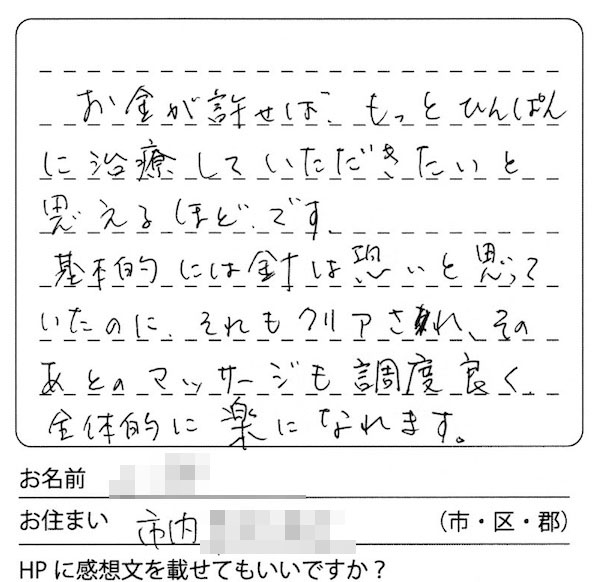 お金が許せば、もっとひんぱん
に治療していただきたいと
思えるほど、です。
基本的には針は恐いと思って
いたのに、それもクリアされ、その
あとのマッサージも調度良く
全体的に楽になれます。
お名前
お住まい 市内 (市・区・郡)
HPに感想文を載せてもいいですか？